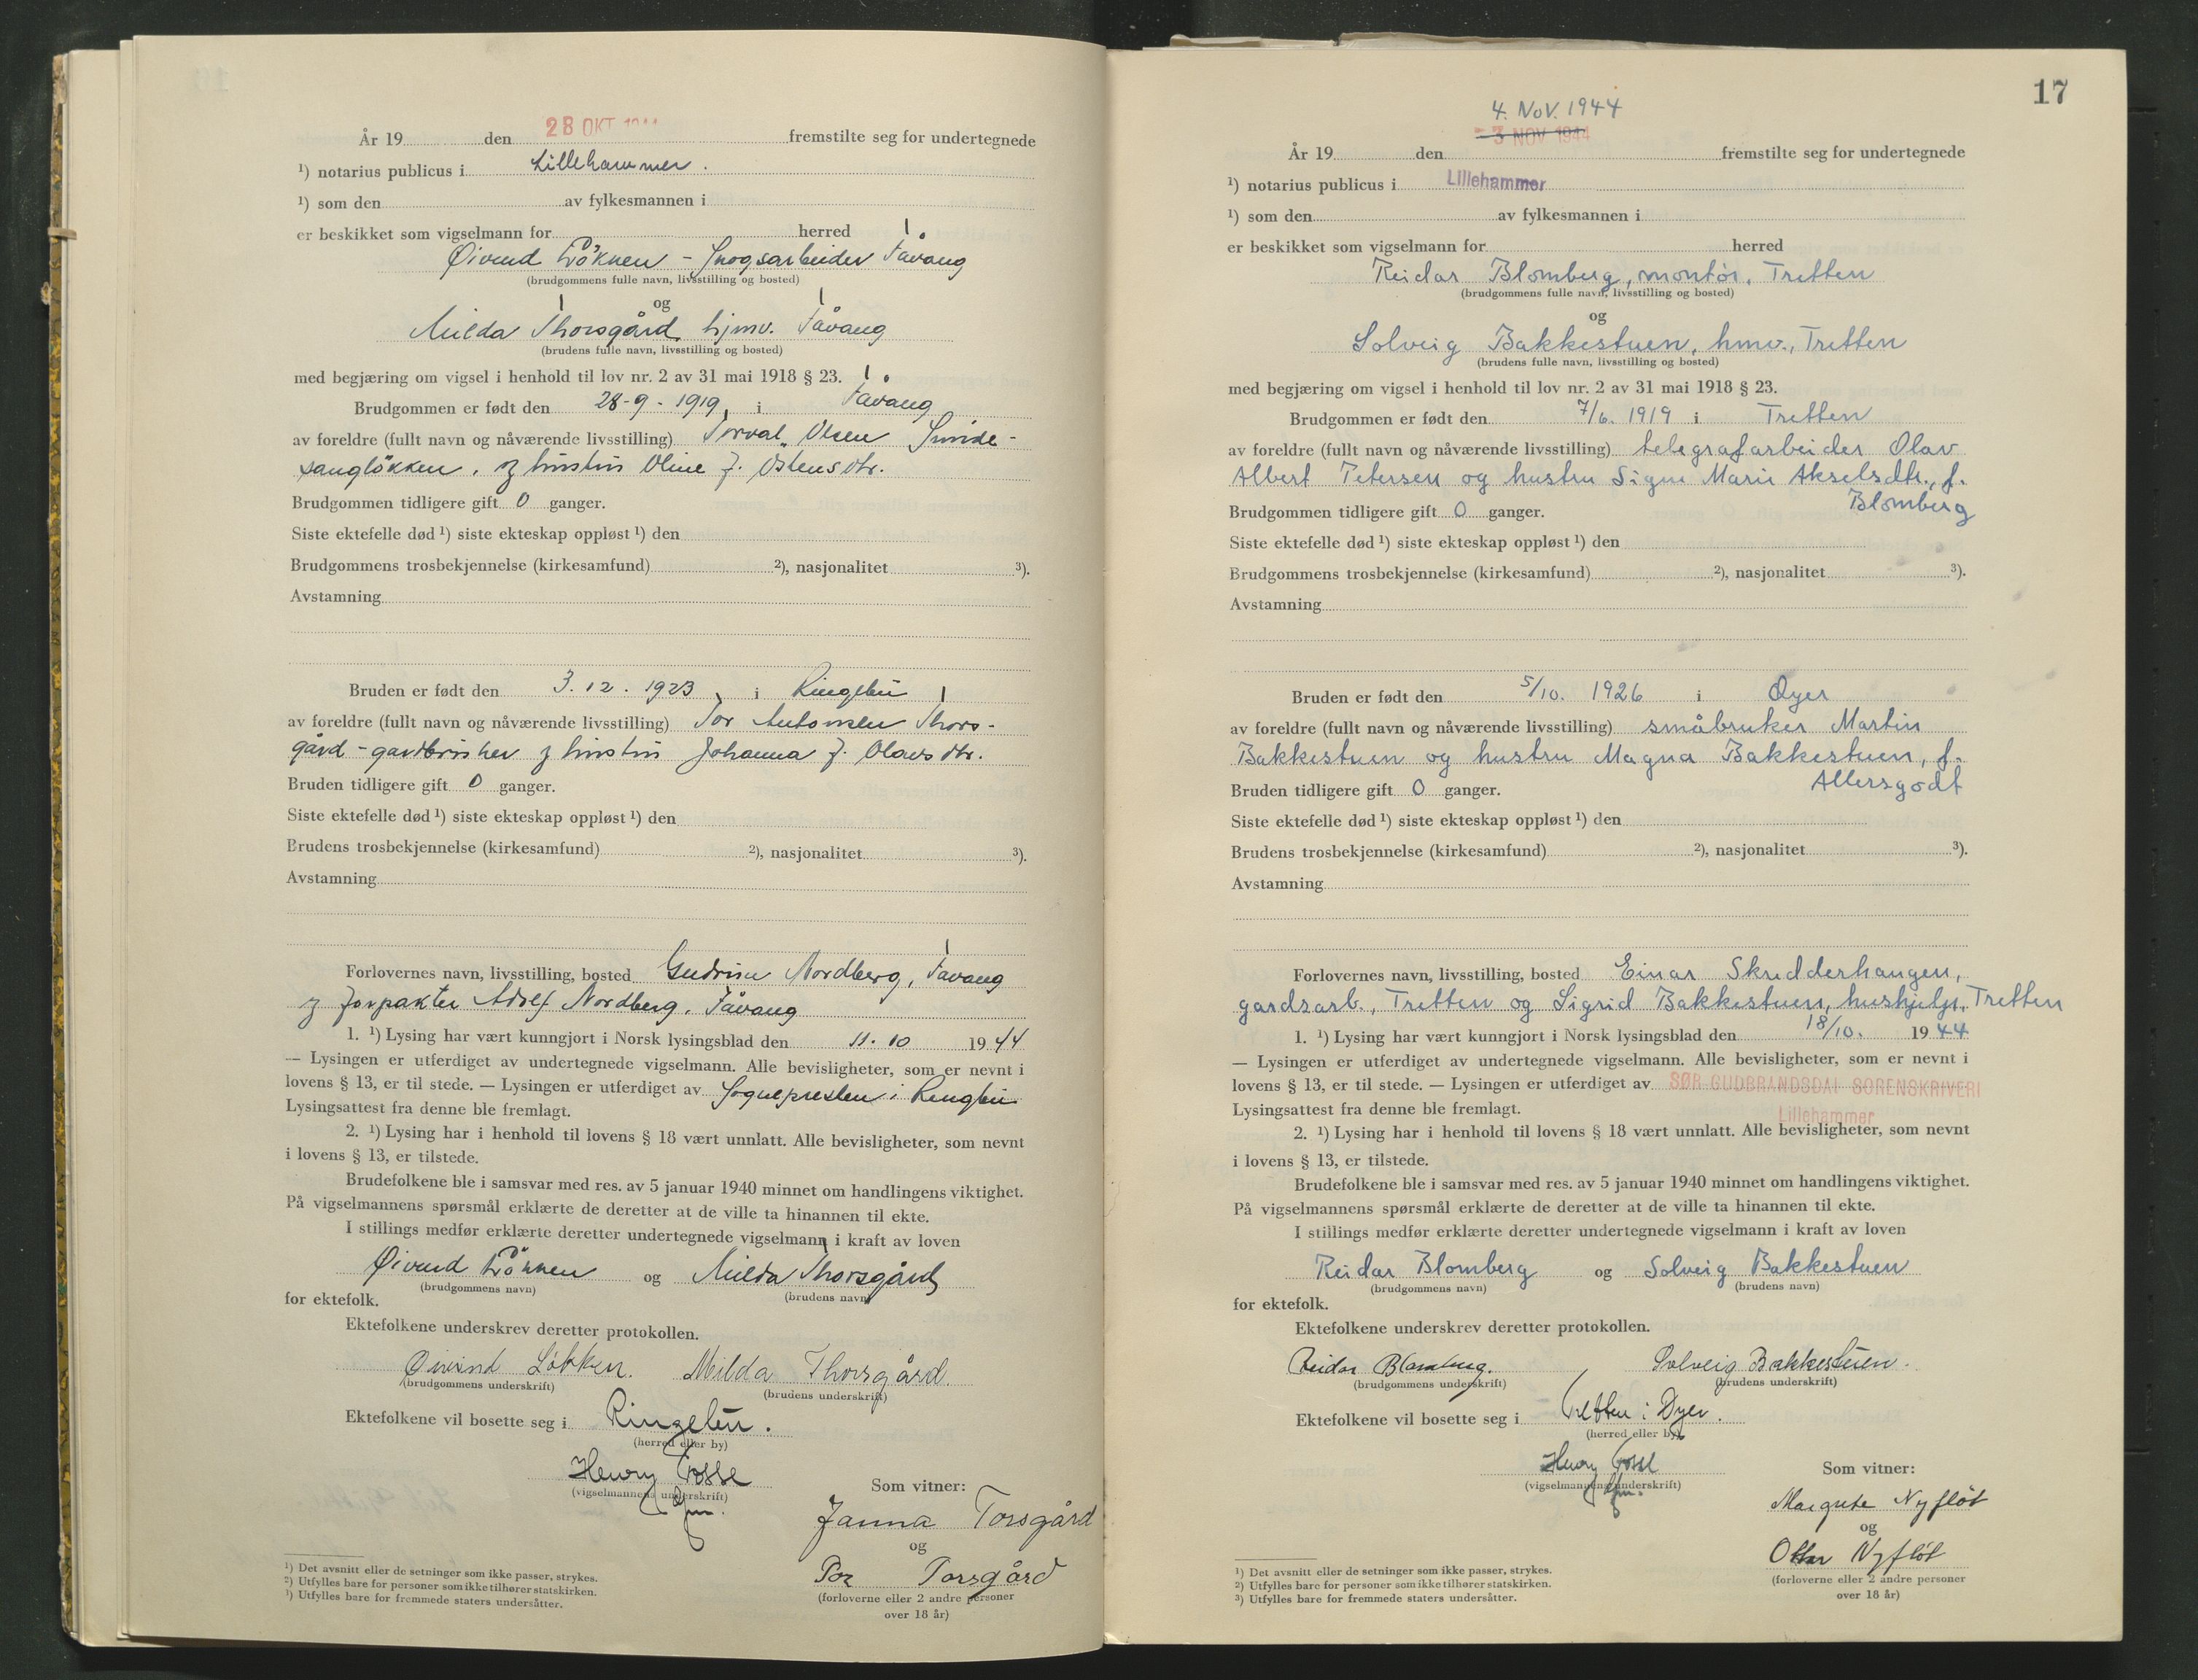 År 19 den 28 OKT 1944 fremstilte seg for undertegnede
¹) notarius publicus i Lillehammer.
¹) som den av fylkesmannen i
er beskikket som vigselmann for herred
Øivind Løkken - Skogsarbeider Fåvang
(brudgommens fulle navn, livsstilling og bosted)
og
Milda Thorsgård hjmv. Fåvang
(brudens fulle navn, livsstilling og bosted)
med begjæring om vigsel i henhold til lov nr. 2 av 31 mai 1918 § 23.
Brudgommen er født den 28-9-1919, i Fåvang
av foreldre (fullt navn og nåværende livsstilling) Torval Olsen
og hustru Oline f. Ostensdtr.
Brudgommen tidligere gift 0 ganger.
Siste ektefelle død ¹) siste ekteskap oppløst ¹) den
Brudgommens trosbekjennelse (kirkesamfund) ²), nasjonalitet ³).
Avstamning
Bruden er født den 3.12.1923, i Ringebu
av foreldre (fullt navn og nåværende livsstilling) Tor Antonsen Thors-
gård - gardbruker og hustru Johanna f. Olavsdtr.
Bruden tidligere gift 0 ganger.
Siste ektefelle død ¹) siste ekteskap oppløst ¹) den
Brudens trosbekjennelse (kirkesamfund) ²), nasjonalitet ³).
Avstamning
Forlovernes navn, livsstilling, bosted Gudrun Nordberg, Fåvang
og forpakter Adolf Nordberg, Fåvang
1. ¹) Lysing har vært kunngjort i Norsk lysingsblad den 11.10 1944
— Lysingen er utferdiget av undertegnede vigselmann. Alle bevisligheter, som er nevnt i
lovens § 13, er til stede. — Lysingen er utferdiget av Sognepresten i Ringebu
Lysingsattest fra denne ble fremlagt.
2. ¹) Lysing har i henhold til lovens § 18 vært unnlatt. Alle bevisligheter, som nevnt
i lovens § 13, er tilstede.
Brudefolkene ble i samsvar med res. av 5 januar 1940 minnet om handlingens viktighet.
På vigselmannens spørsmål erklærte de deretter at de ville ta hinannen til ekte.
I stillings medfør erklærte deretter undertegnede vigselmann i kraft av loven
Øivind Løkken og Milda Thorsgård
(brudgommens navn) (brudens navn)
for ektefolk.
Ektefolkene underskrev deretter protokollen.
Øivind Løkken. Milda Thorsgård.
(brudgommens underskrift) (brudens underskrift)
Ektefolkene vil bosette seg i Ringebu.
(herred eller by)
Henry Fosse
(vigselmannens underskrift)
Som vitner:
Janna Torsgård
og
Por Torsgård
(forloverne eller 2 andre personer
over 18 år)
¹) Det avsnitt eller de setninger som ikke passer, strykes.
²) Utfylles bare for personer som ikke tilhører statskirken.
³) Utfylles bare for fremmede staters undersåtter.
17
4. NOV. 1944
3 NOV 1944
År 19 den fremstilte seg for undertegnede
¹) notarius publicus i Lillehammer
¹) som den av fylkesmannen i
er beskikket som vigselmann for herred
Reidar Blomberg, montør, Tretten
(brudgommens fulle navn, livsstilling og bosted)
og
Solveig Bakkestuen, hmv., Tretten
(brudens fulle navn, livsstilling og bosted)
med begjæring om vigsel i henhold til lov nr. 2 av 31 mai 1918 § 23.
Brudgommen er født den 7/6. 1919 i Tretten
av foreldre (fullt navn og nåværende livsstilling) telegrafarbeider Olav
Albert Petersen og hustru Signe Marie Akselsdtr., f.
Blomberg
Brudgommen tidligere gift 0 ganger.
Siste ektefelle død ¹) siste ekteskap oppløst ¹) den
Brudgommens trosbekjennelse (kirkesamfund) ²), nasjonalitet ³).
Avstamning
Bruden er født den 5/10. 1926 i Øyer
av foreldre (fullt navn og nåværende livsstilling) småbruker Martin
Bakkestuen og hustru Magna Bakkestuen, f.
Allersgodt
Bruden tidligere gift 0 ganger.
Siste ektefelle død ¹) siste ekteskap oppløst ¹) den
Brudens trosbekjennelse (kirkesamfund) ²), nasjonalitet ³).
Avstamning
Forlovernes navn, livsstilling, bosted Einar Skredderhaugen,
gardsarb., Tretten og Sigrid Bakkestuen, hushjelp, Tretten
1. ¹) Lysing har vært kunngjort i Norsk lysingsblad den 18/10. 1944
— Lysingen er utferdiget av undertegnede vigselmann. Alle bevisligheter, som er nevnt i
lovens § 13, er til stede. — Lysingen er utferdiget av SØR-GUDBRANDSDAL SORENSKRIVERI
Lillehammer
Lysingsattest fra denne ble fremlagt.
2. ¹) Lysing har i henhold til lovens § 18 vært unnlatt. Alle bevisligheter, som nevnt
i lovens § 13, er tilstede.
Brudefolkene ble i samsvar med res. av 5 januar 1940 minnet om handlingens viktighet.
På vigselmannens spørsmål erklærte de deretter at de ville ta hinannen til ekte.
I stillings medfør erklærte deretter undertegnede vigselmann i kraft av loven
Reidar Blomberg og Solveig Bakkestuen
(brudgommens navn) (brudens navn)
for ektefolk.
Ektefolkene underskrev deretter protokollen.
Reidar Blomberg. Solveig Bakkestuen.
(brudgommens underskrift) (brudens underskrift)
Ektefolkene vil bosette seg i Tretten i Øyer.
(herred eller by)
Henry Fosse
(vigselmannens underskrift)
Som vitner:
Margrete Nyfløt
og
Ottar Nyfløt
(forloverne eller 2 andre personer
over 18 år)
¹) Det avsnitt eller de setninger som ikke passer, strykes.
²) Utfylles bare for personer som ikke tilhører statskirken.
³) Utfylles bare for fremmede staters undersåtter.